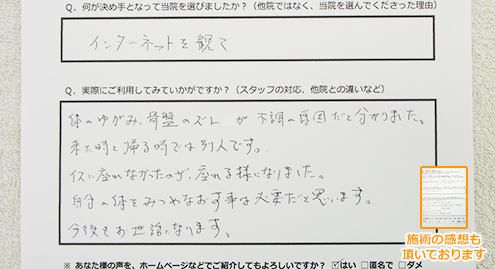 Q. 何が決め手となって当院を選びましたか？（他院ではなく、当院を選んでくださった理由）
インターネットを観て
Q. 実際にご利用してみていかがですか？（スタッフの対応、他院との違いなど）
体のゆがみ、骨盤のズレ が 不調の原因だと分かりました。
来た時と帰る時では別人です。
イスに座れなかったのが、座れる様になりました。
自分の体をみつめなおす事は必要だと思います。
今後もお世話になります。
※ あなた様の声を、ホームページなどでご紹介してもよろしいですか？ ☑はい □匿名で □ダメ
施術の感想も
頂いております